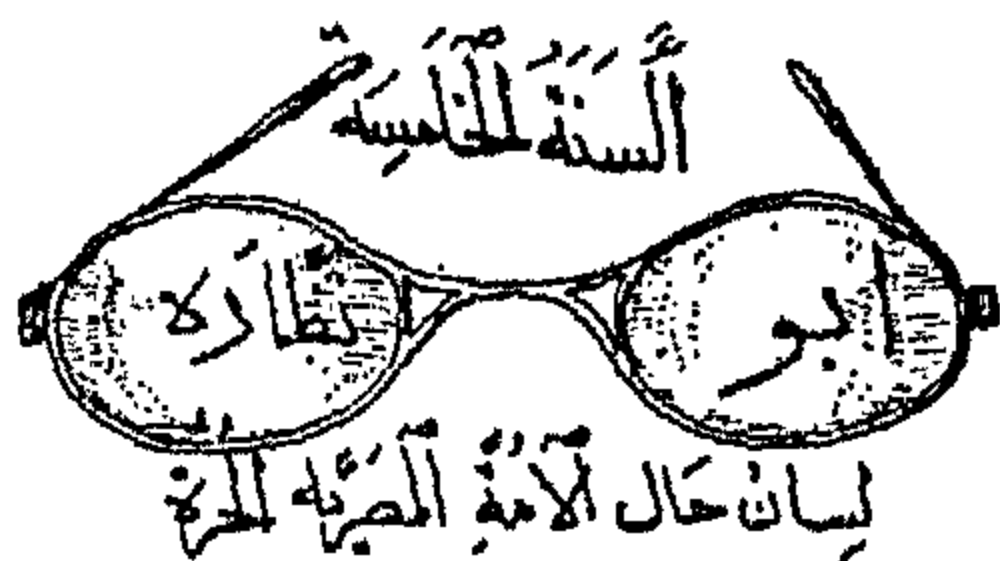 أَلسَنَةُ ٱلخَامِسَه
ابو نظاره
لِسان حَال ٱلأُمةِ ٱلمصريّه ٱلحرة